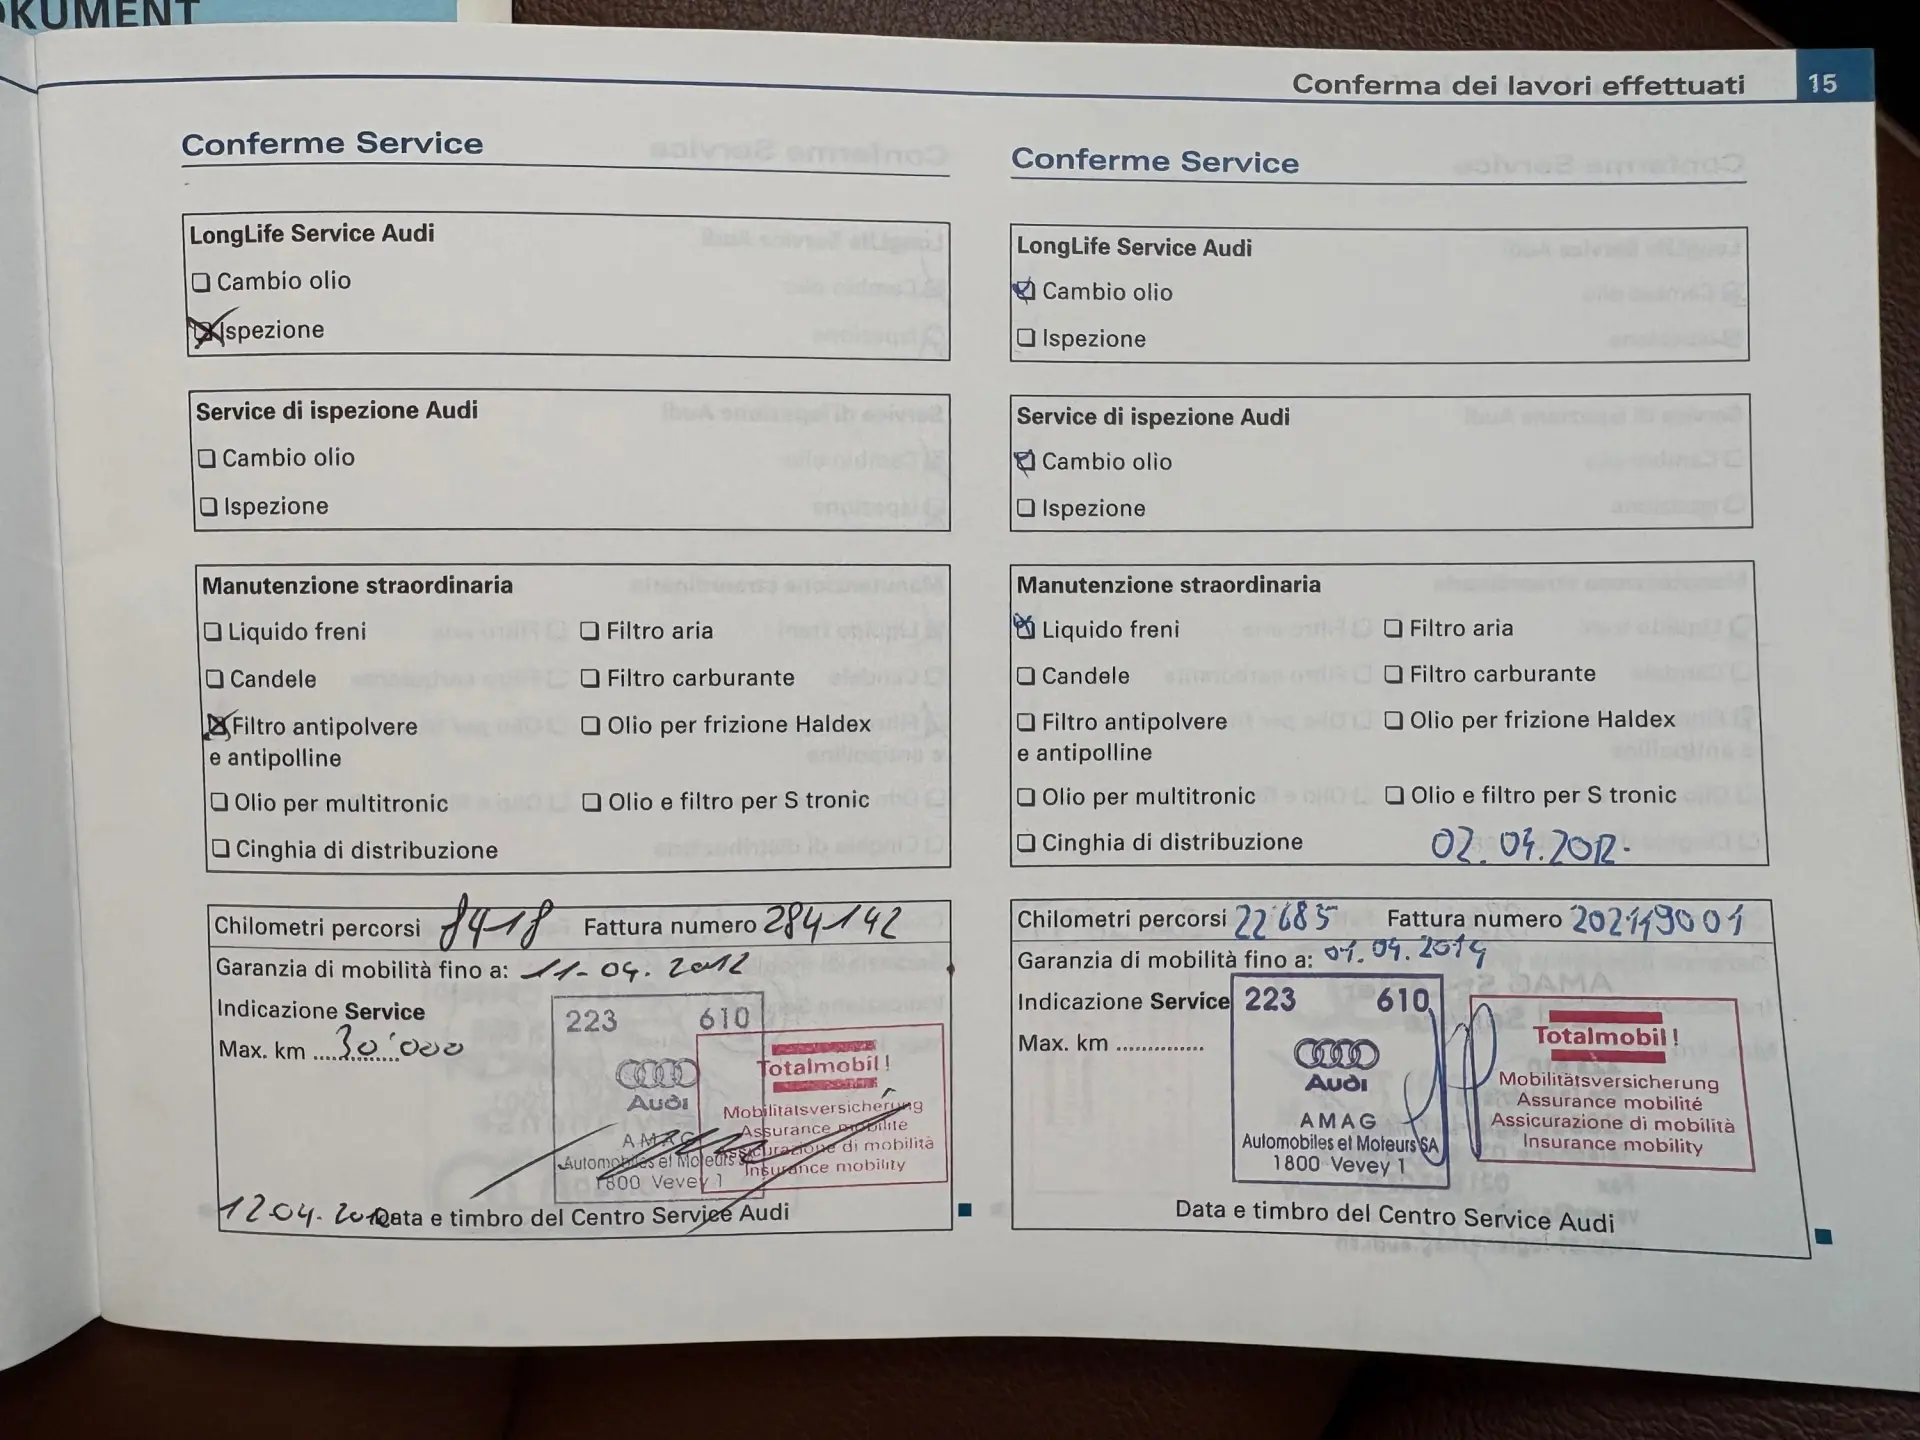 KUMENT
Conferma dei lavori effettuati 15
Conferme Service
LongLife Service Audi
Cambio olio
Ispezione
Service di ispezione Audi
Cambio olio
Ispezione
Manutenzione straordinaria
Liquido freni Filtro aria
Candele Filtro carburante
Filtro antipolvere Olio per frizione Haldex
e antipolline
Olio per multitronic Olio e filtro per S tronic
Cinghia di distribuzione
Chilometri percorsi 8418 Fattura numero 284142
Garanzia di mobilità fino a: 11-04. 2012
Indicazione Service
Max. km ....30'000
223 610
Audi
AMAG
Automobiles et Moteurs SA
1800 Vevey 1
Totalmobil!
Mobilitätsversicherung
Assurance mobilité
Assicurazione di mobilità
Insurance mobility
12-04. 2010
Data e timbro del Centro Service Audi
Conferme Service
LongLife Service Audi
Cambio olio
Ispezione
Service di ispezione Audi
Cambio olio
Ispezione
Manutenzione straordinaria
Liquido freni Filtro aria
Candele Filtro carburante
Filtro antipolvere Olio per frizione Haldex
e antipolline
Olio per multitronic Olio e filtro per S tronic
Cinghia di distribuzione 02.04.2012.
Chilometri percorsi 22'685 Fattura numero 202149001
Garanzia di mobilità fino a: 01.04.2014
Indicazione Service
Max. km ..............
223 610
Audi
AMAG
Automobiles et Moteurs SA
1800 Vevey 1
Totalmobil!
Mobilitätsversicherung
Assurance mobilité
Assicurazione di mobilità
Insurance mobility
Data e timbro del Centro Service Audi